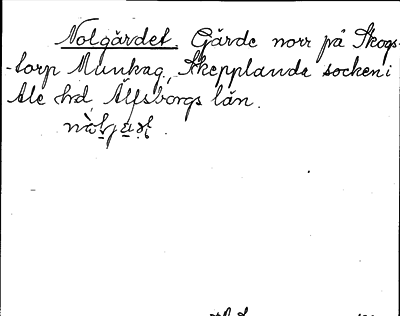 Nolgärdet. Gärde norr på Skogs-
-torp Munkag., Skepplanda socken i
Ale hd, Älfsborgs län.